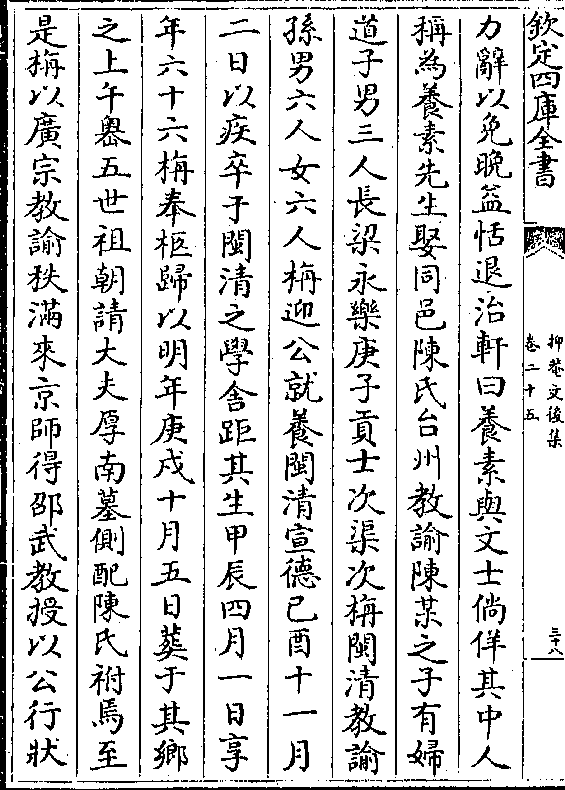 欽定四庫全書
抑菴文後集
卷二十五
三十八
力辭以免晚益恬退治軒曰養素與文士倘佯其中人
稱為養素先生娶同邑陳氏台州教諭陳某之子有婦
道子男三人長梁永樂庚子貢士次渠次栴閩清教諭
孫男六人女六人栴迎公就養閩清宣德己酉十一月
二日以疾卒于閩清之學舍距其生甲辰四月一日享
年六十六栴奉柩歸以明年庚戌十月五日葬于其鄉
之上午嶴五世祖朝請大夫厚南墓側配陳氏祔焉至
是栴以廣宗教諭秩滿來京師得邵武教授以公行狀